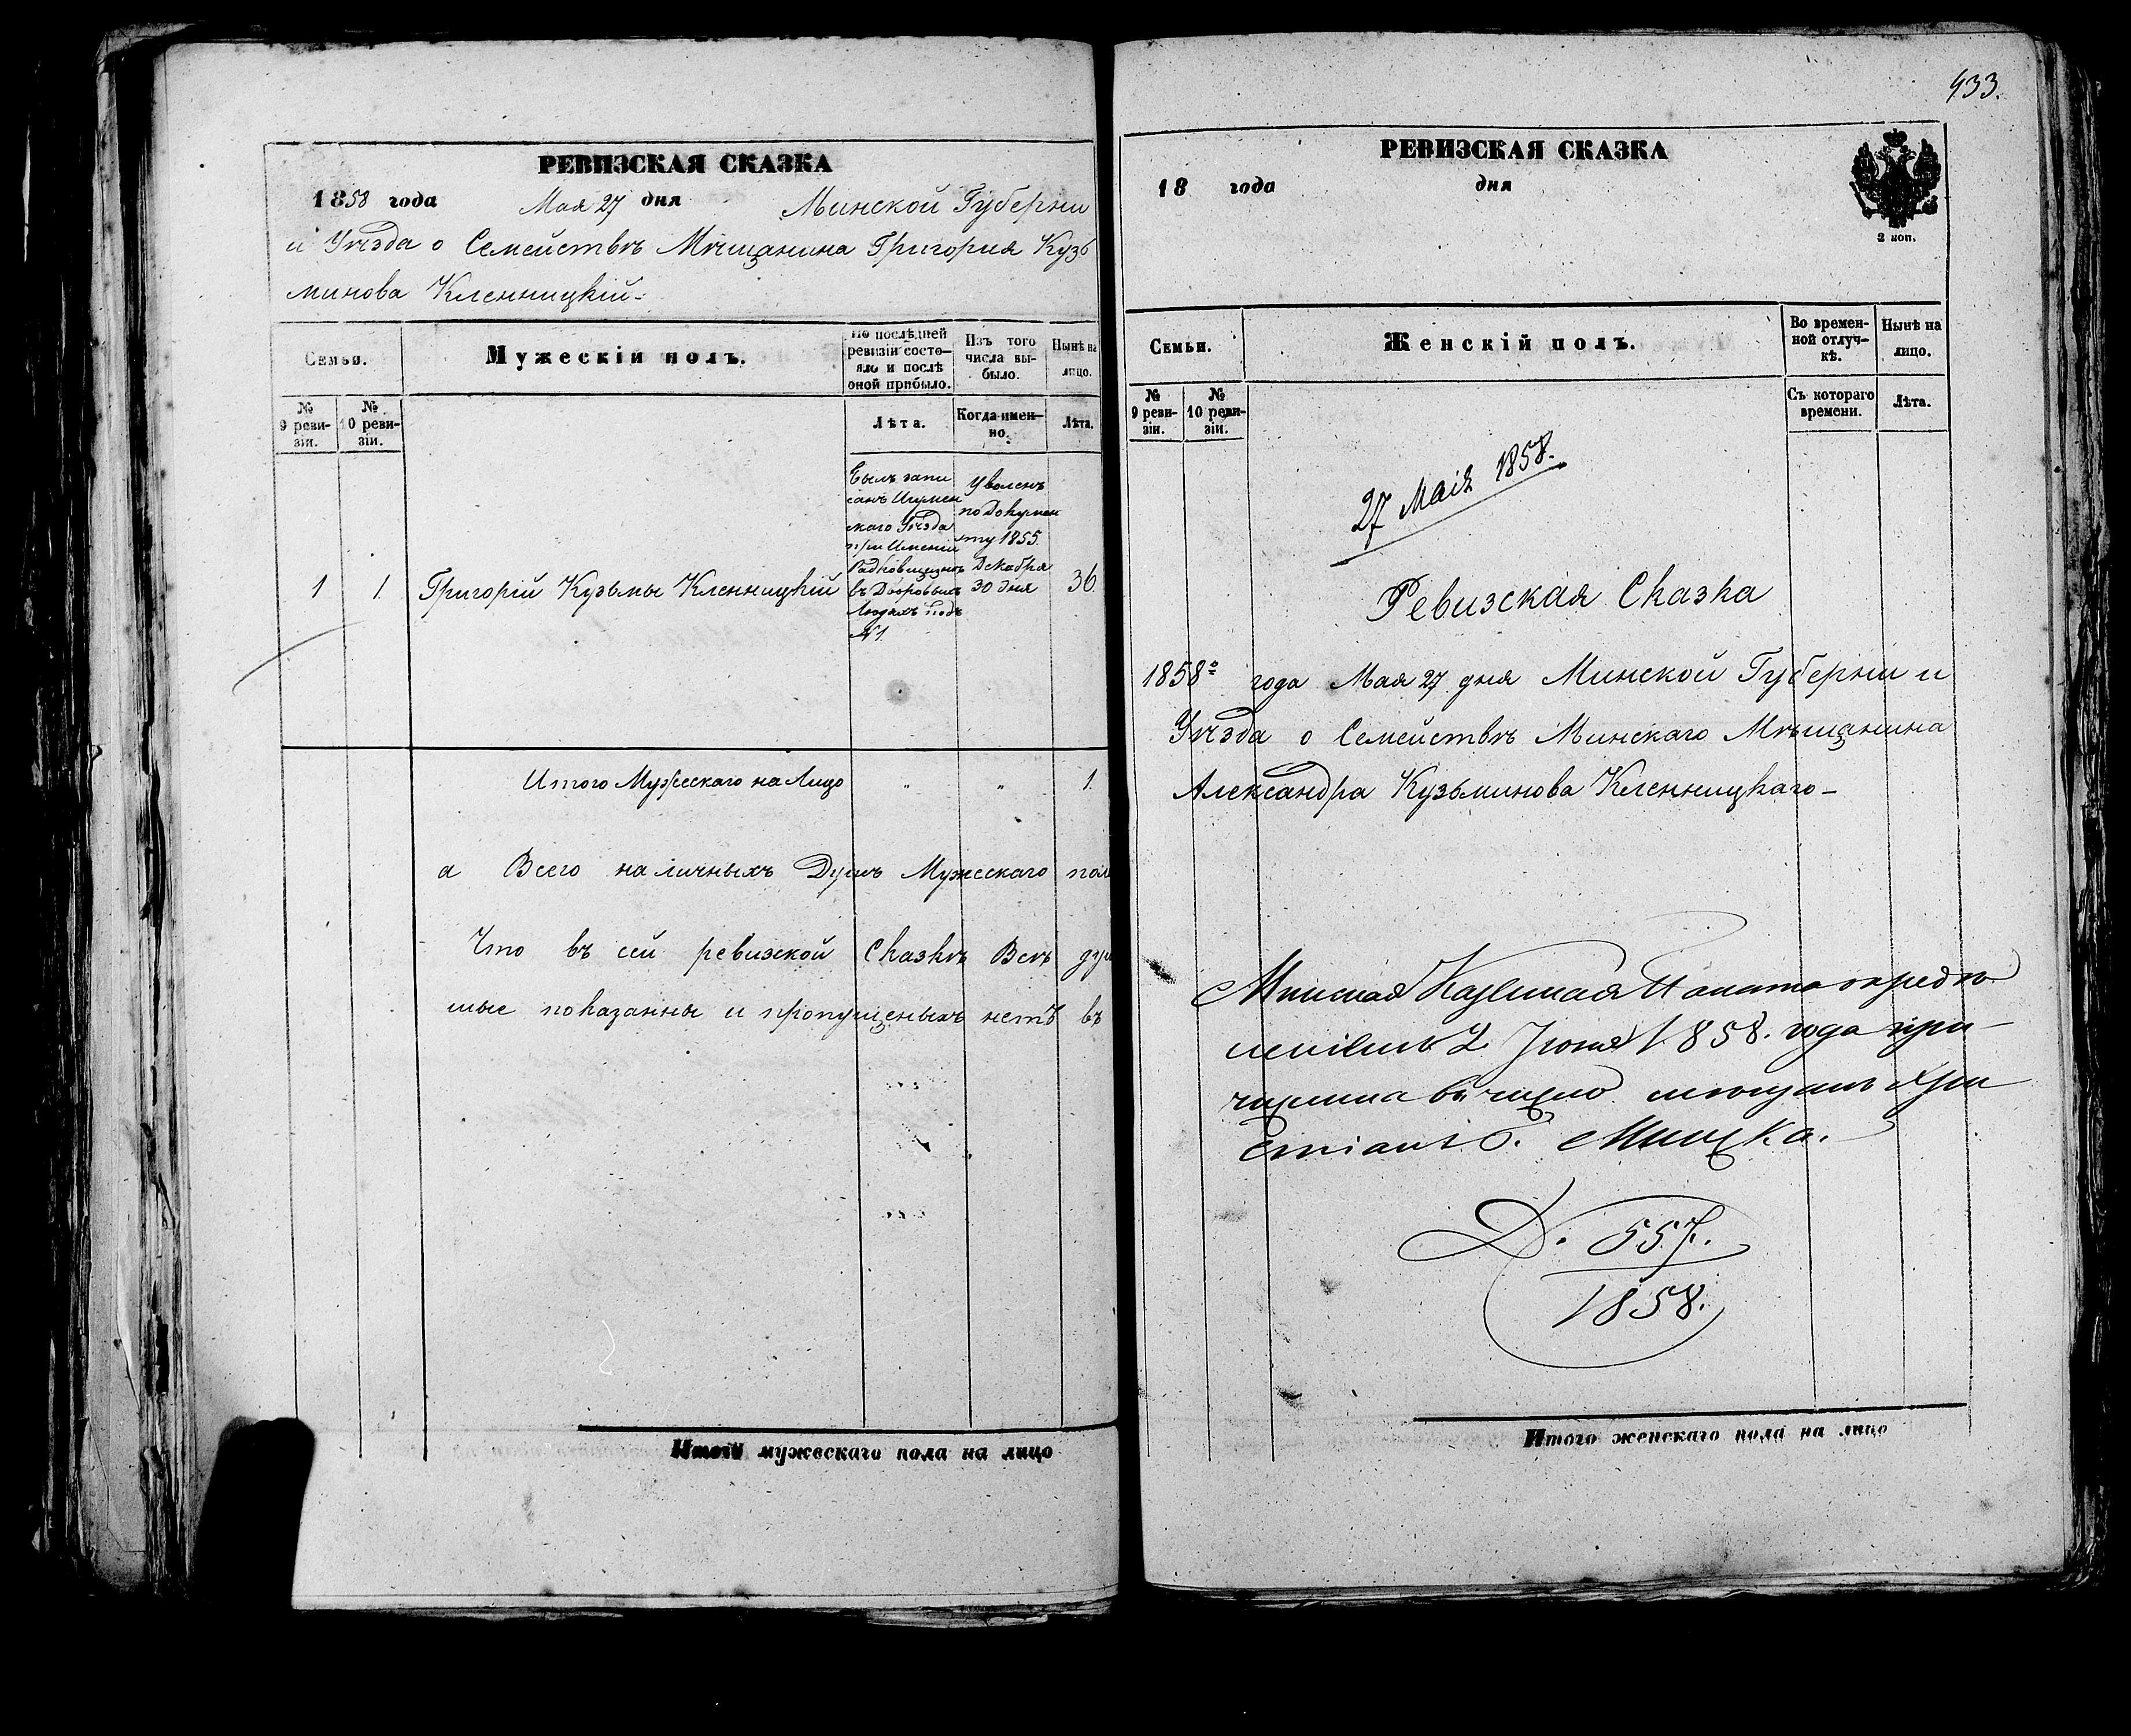 РЕВИЗСКАЯ СКАЗКА
1858 года Мая 27 дня Минской Губерніи
и Уѣзда о Семействѣ Мѣщанина Григорія Кузь
минова Кленницкій
Семьи.
Мужескій полъ.
По послѣдней
ревизіи состо-
яло и послѣ
оной прибыло.
Изъ того
числа вы-
было.
Нынѣ на
лицо.
№
9 реви-
зіи.
№
10 реви-
зіи.
Лѣта.
Когда имен-
но.
Лѣта.
Былъ запи
санъ Игумен
скаго Уѣзда
при Имѣніи
въ Дворовыхъ
Людяхъ подъ
№ 1.
Уволенъ
по Докумен
ту 1855.
Декабря
30 дня
1 1. Григорій Кузьмы Кленницкій 36.
Итого Мужескаго на Лицо " " 1.
а Всего наличныхъ Душъ Мужескаго пол
Что въ сей ревизкой Сказкѣ Всѣ ду
шые показанны и пропущеныхъ нетъ въ
Итого мужескаго пола на лицо
433.
РЕВИЗСКАЯ СКАЗКА
18 года дня
2 коп.
Семьи.
Женскій полъ.
Во времен-
ной отлуч-
кѣ.
Нынѣ на
лицо.
№
9 реви-
зіи.
№
10 реви-
зіи.
Съ котораго
времени.
Лѣта.
27 Маія 1858.
Ревизская Сказка
1858го года Мая 27 дня Минской Губерніи и
Уѣзда о Семействѣ Минскаго Мѣщанина
Александра Кузьминова Кленницкаго
Минская Казенная Палата опредѣ
леніемъ 2 Іюня 1858. года при-
числила въ число мѣщанъ Хри
стіанъ г. Минска.
Д. 557.
1858.
Итого женскаго пола на лицо